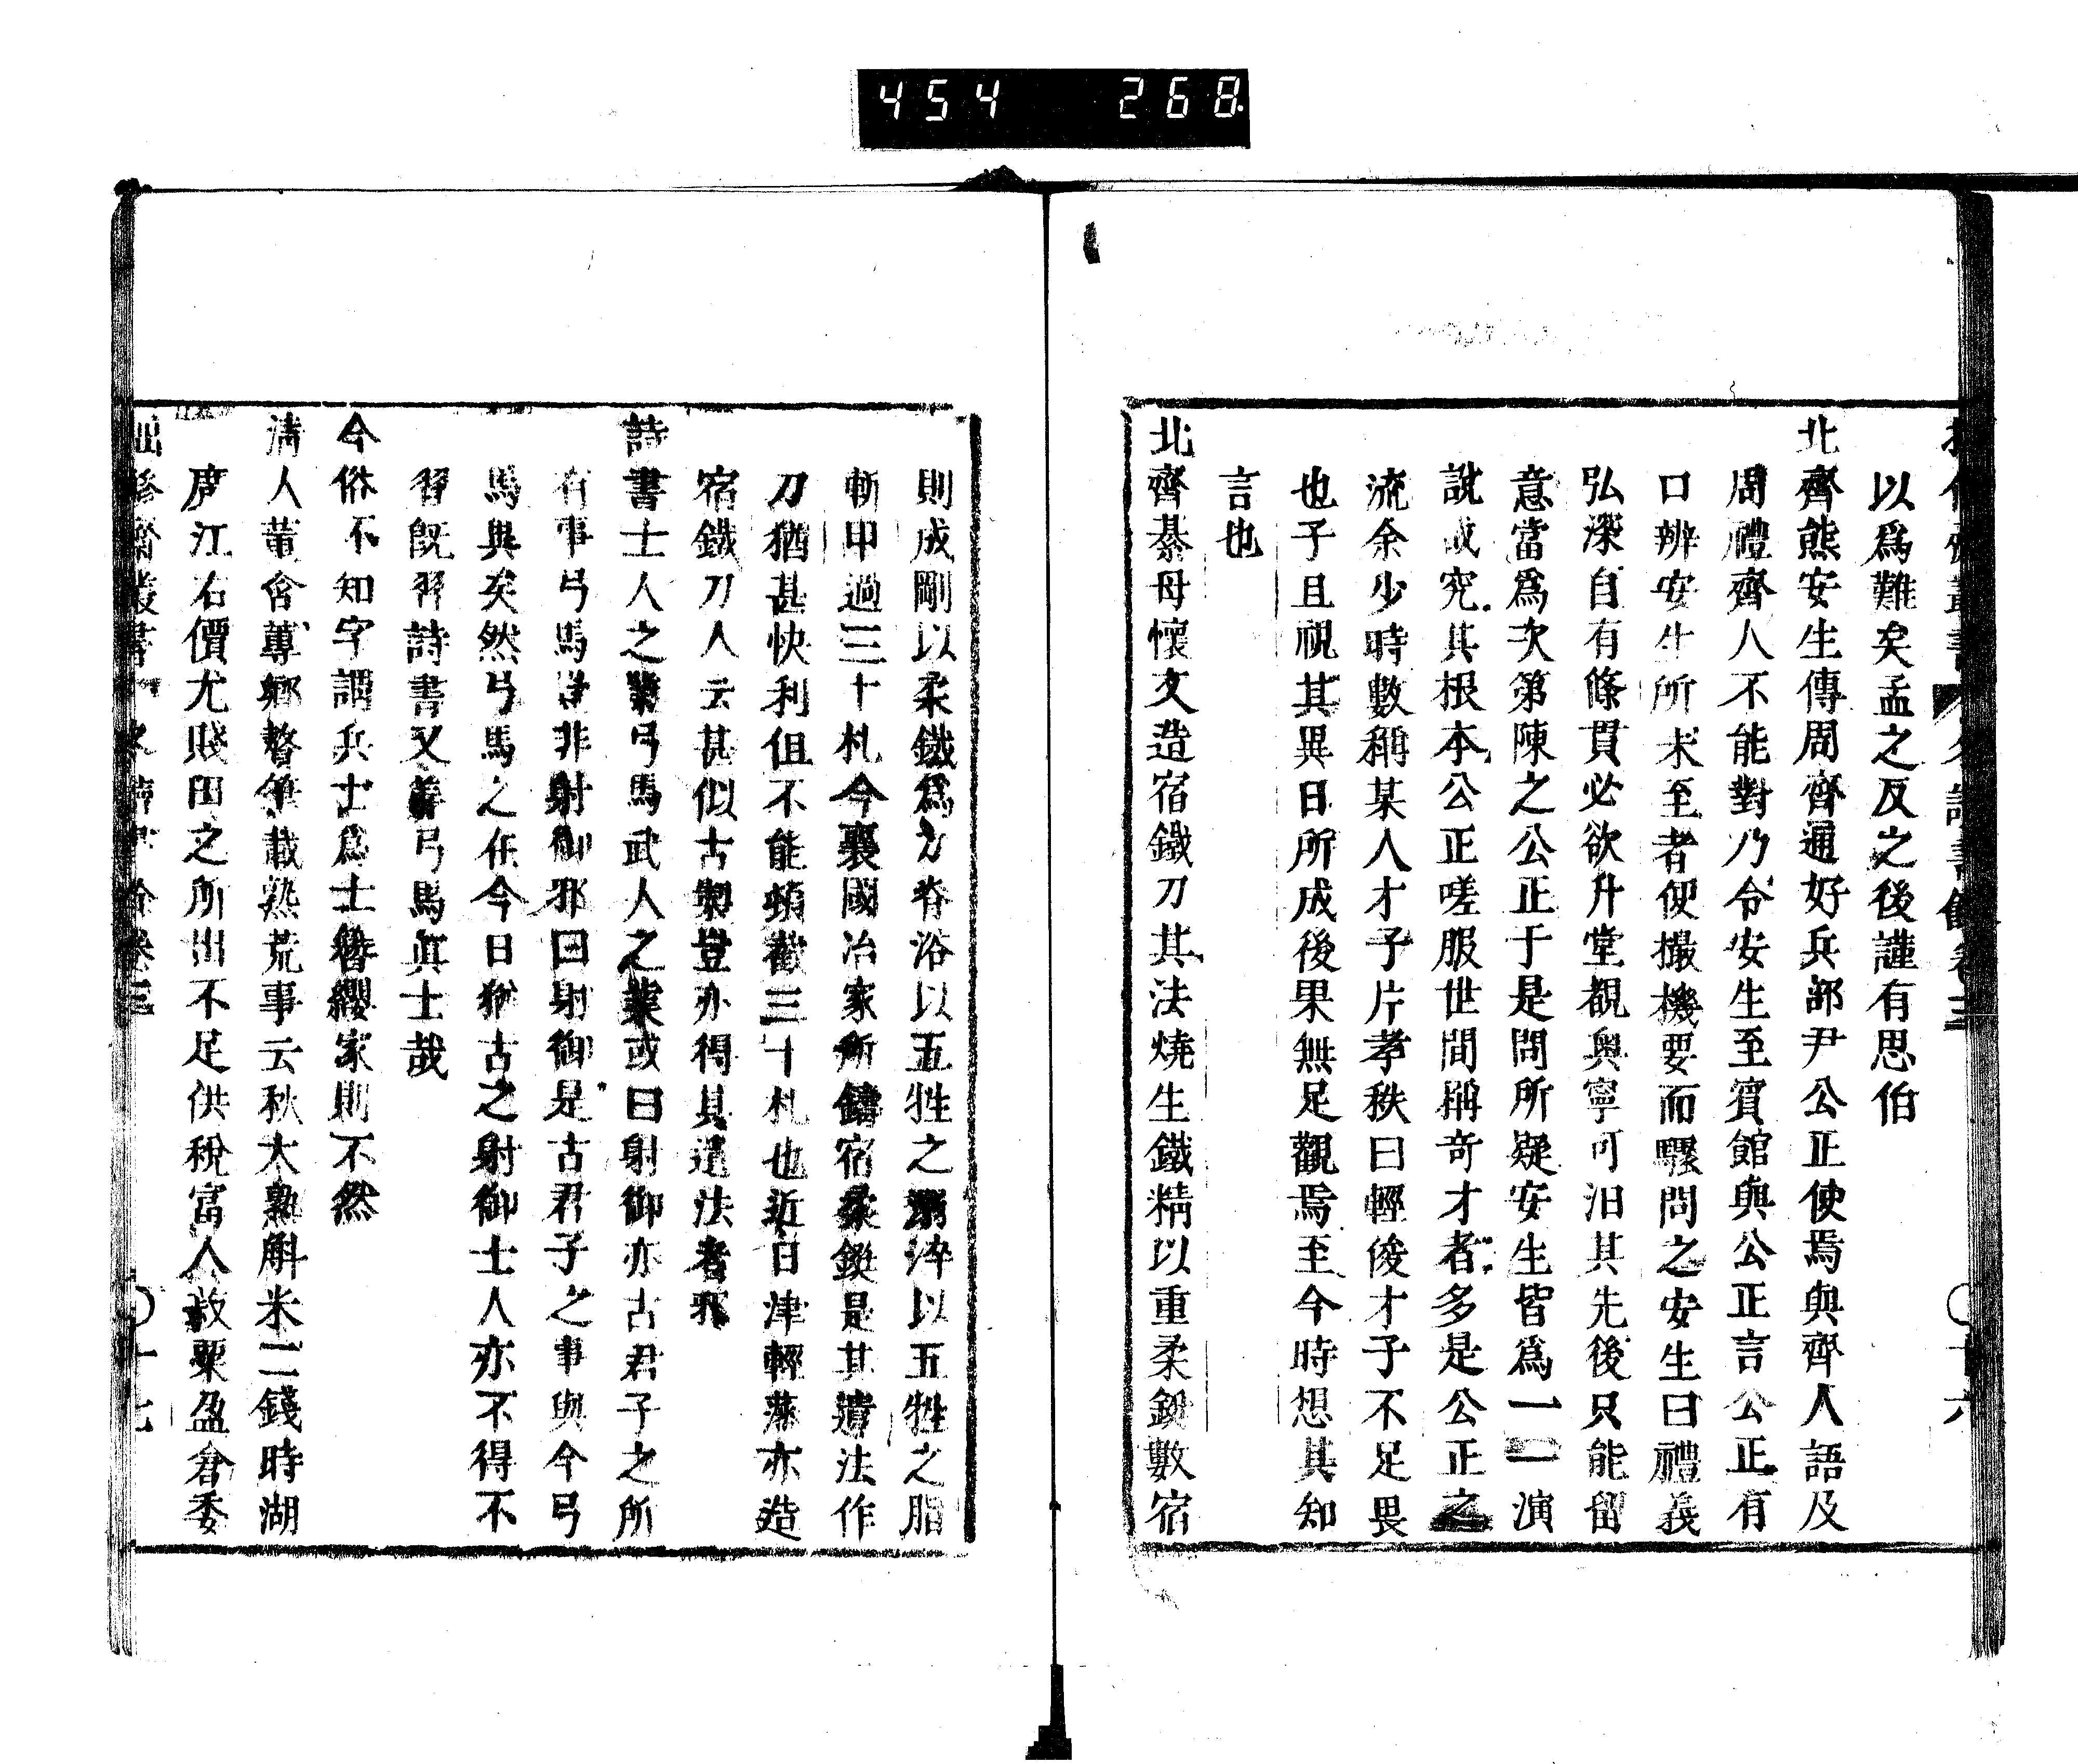 454 268
以爲難矣孟之反之後謹有思伯
北齊熊安生傳周齊通好兵部尹公正使焉與齊人語及
周禮齊人不能對乃令安生至賓館與公正言公正有
口辨安生所未至者便撮機要而驟問之安生曰禮義
弘深自有條貫必欲升堂覩奧寧可汩其先後只能留
意當爲次第陳之公正于是問所疑安生皆爲一一演
說咸究其根本公正嗟服世間稱奇才者多是公正之
流余少時數稱某人才子片孝秩曰輕俊才子不足畏
也子且視其異日所成後果無足觀焉至今時想其知
言也
北齊綦母懷文造宿鐵刀其法燒生鐵精以重柔鋌數宿
則成剛以柔鐵爲刀脊浴以五牲之溺淬以五牲之脂
斬甲過三十札今襄國冶家所鑄宿柔鋌是其遺法作
刀猶甚快利但不能頓截三十札也近日津輕藩亦造
宿鐵刀人云甚似古製豈亦得其遺法者邪
詩書士人之業弓馬武人之業或曰射御亦古君子之所
有事弓馬豈非射御邪曰射御是古君子之事與今弓
馬與矣然弓馬之任今日猶古之射御士人亦不得不
習既習詩書又善弓馬眞士哉
今俗不知字謂兵士爲士簪纓家則不然
淸人董含蓴鄉贅筆載熟荒事云秋大熟斛米二錢時湖
廣江右價尤賤田之所出不足供稅富人故粟盈倉委